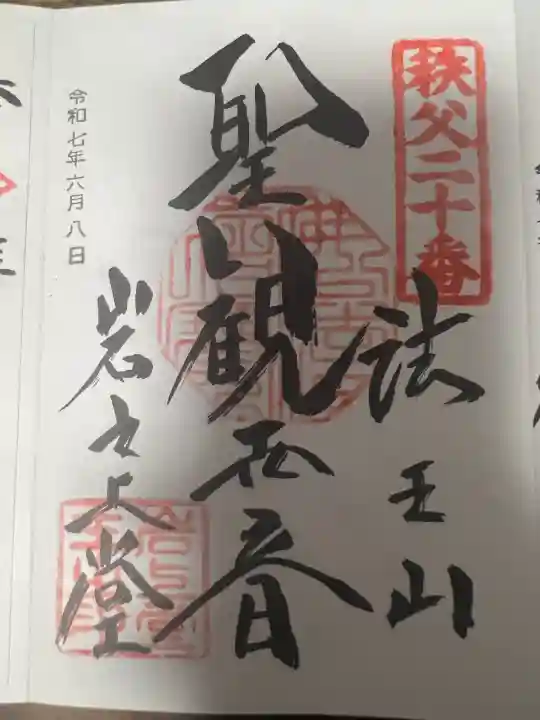 秩父二十番
法王山
聖観世音
岩之上堂
令和七年六月八日